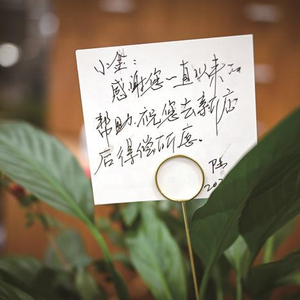 小金：
感谢您一直以来的
帮助，祝您去新店
后得偿所愿。
陈
20